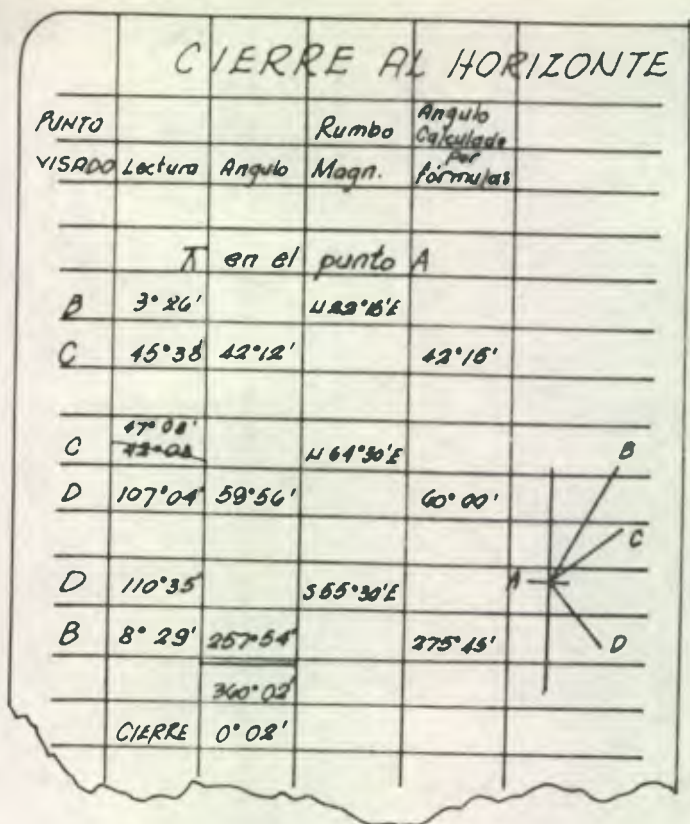 CIERRE AL HORIZONTE
PUNTO VISADO Lectura Angulo Rumbo Magn. Angulo Calculado Por fórmulas
⊼ en el punto A
B 3°26' N22°15'E
C 45°38' 42°12' 42°15'
47°08'
C 42°08 N64°30'E
D 107°04' 59°56' 60°00'
D 110°35' S55°30'E
B 8°29' 257°54' 275°45'
360°02'
CIERRE 0°02'
B
C
A
D